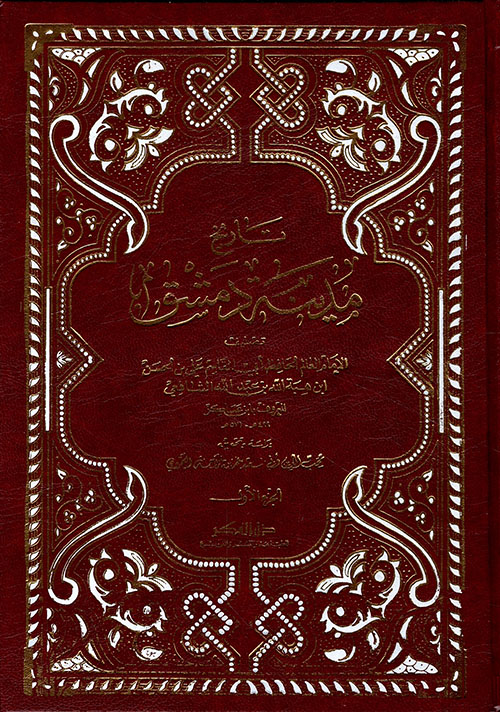 تاريخ
مدينة دمشق
تصنيف
الإمام العالم الحافظ أبي القاسم علي بن الحسن
ابن هبة الله بن عبد الله الشافعي
المعروف بابن عساكر
٤٩٩هـ - ٥٧١هـ
دراسة وتحقيق
محب الدين
الجزء الأول
دار الفكر